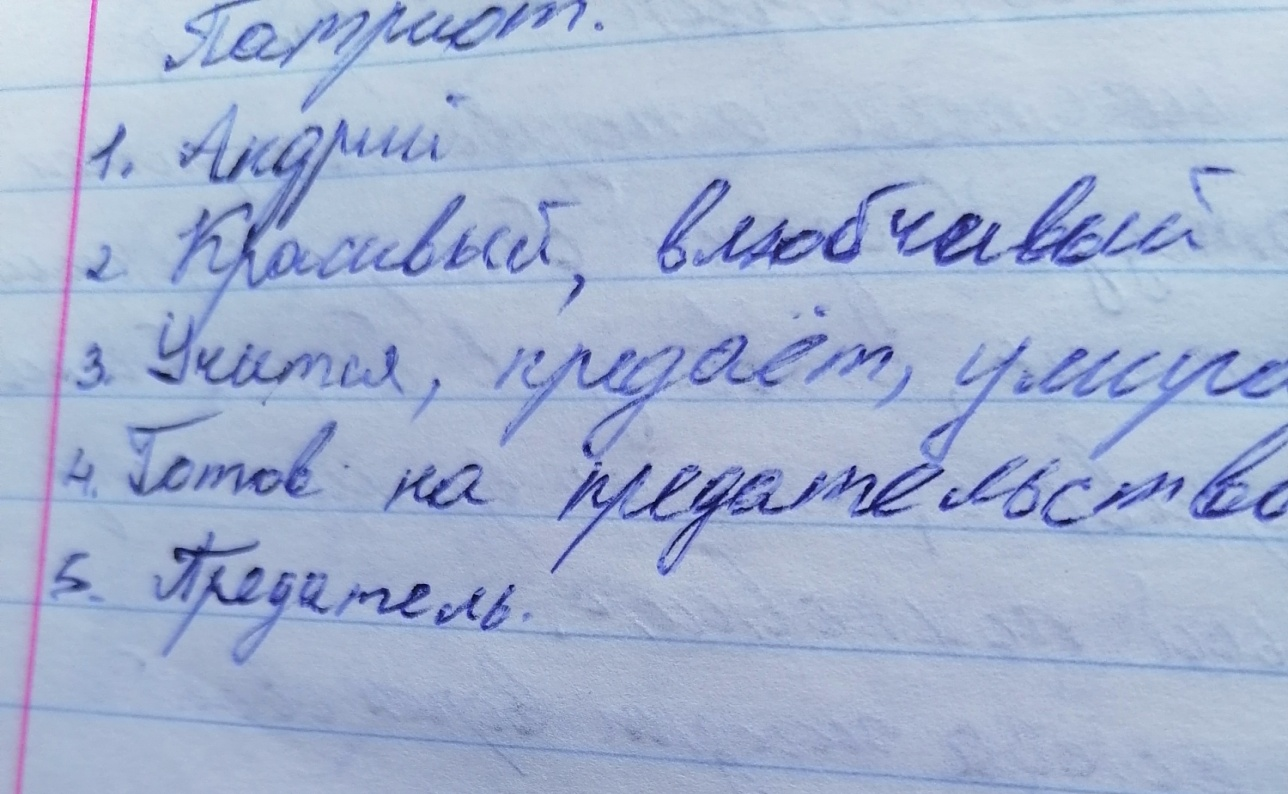 Патриот.
1. Андрий
2 Красивый, влюбчивый
3. Учится, предаёт, умира
4. Готов на предательство
5. Предатель.